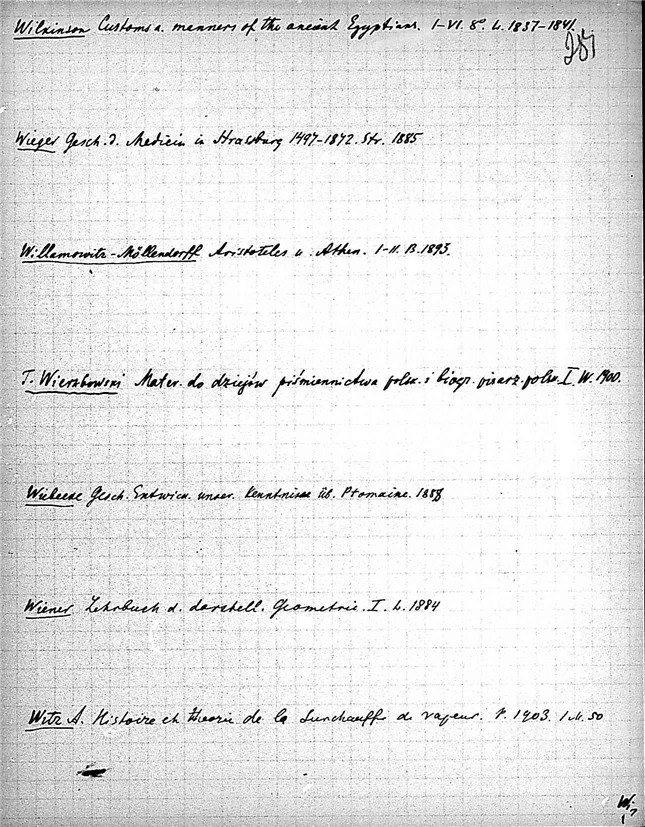 Wilkinson Customs a. manners of the ancient Egyptians. I-VI. 8°. L. 1837-1841
281
Wieger Gesch. d. Medicin in Strassburg 1497-1872. Str. 1885
Willamowitz-Möllendorff Aristoteles u. Athen. I-II. B. 1893.
T. Wierzbowski Mater. do dziejów piśmiennictwa polsk. i biogr. pisarz. polsk. I W. 1900.
Gesch. Entwick. unser. Kenntnisse üb. Ptomaine. 1888
Wiener Lehrbuch d. darstell. Geometrie. I. L. 1884
Witz A. Histoire et theorie de la Surchauffe de vapeur. P. 1903. 1 M. 50
Wi